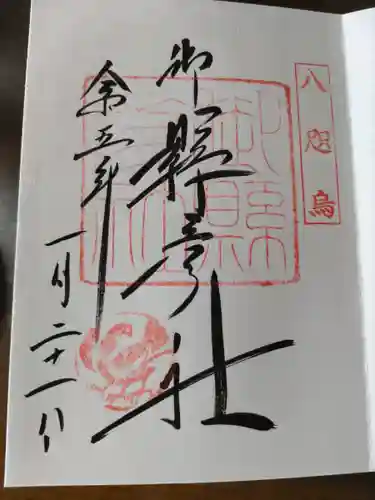 八咫烏
御縣彦社
令和五年
一月二十一日